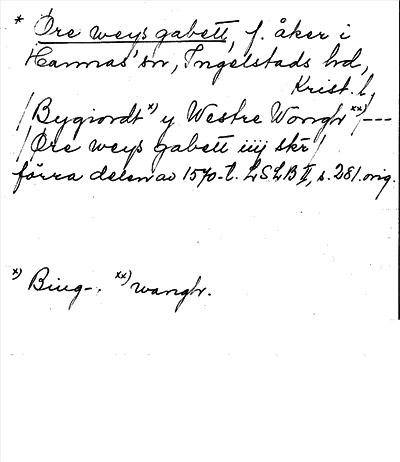 * Öre weys gabett, f. åker i
Hannas' sn, Ingelstads hd,
Krist. l.
/Bygiordt x) y Westre Wongh xx) /---
/Öre weys gabett iiij skr/
förra delen av 1570-t. LSLB II, s. 281. orig.
x) Biug-. xx) wangh.